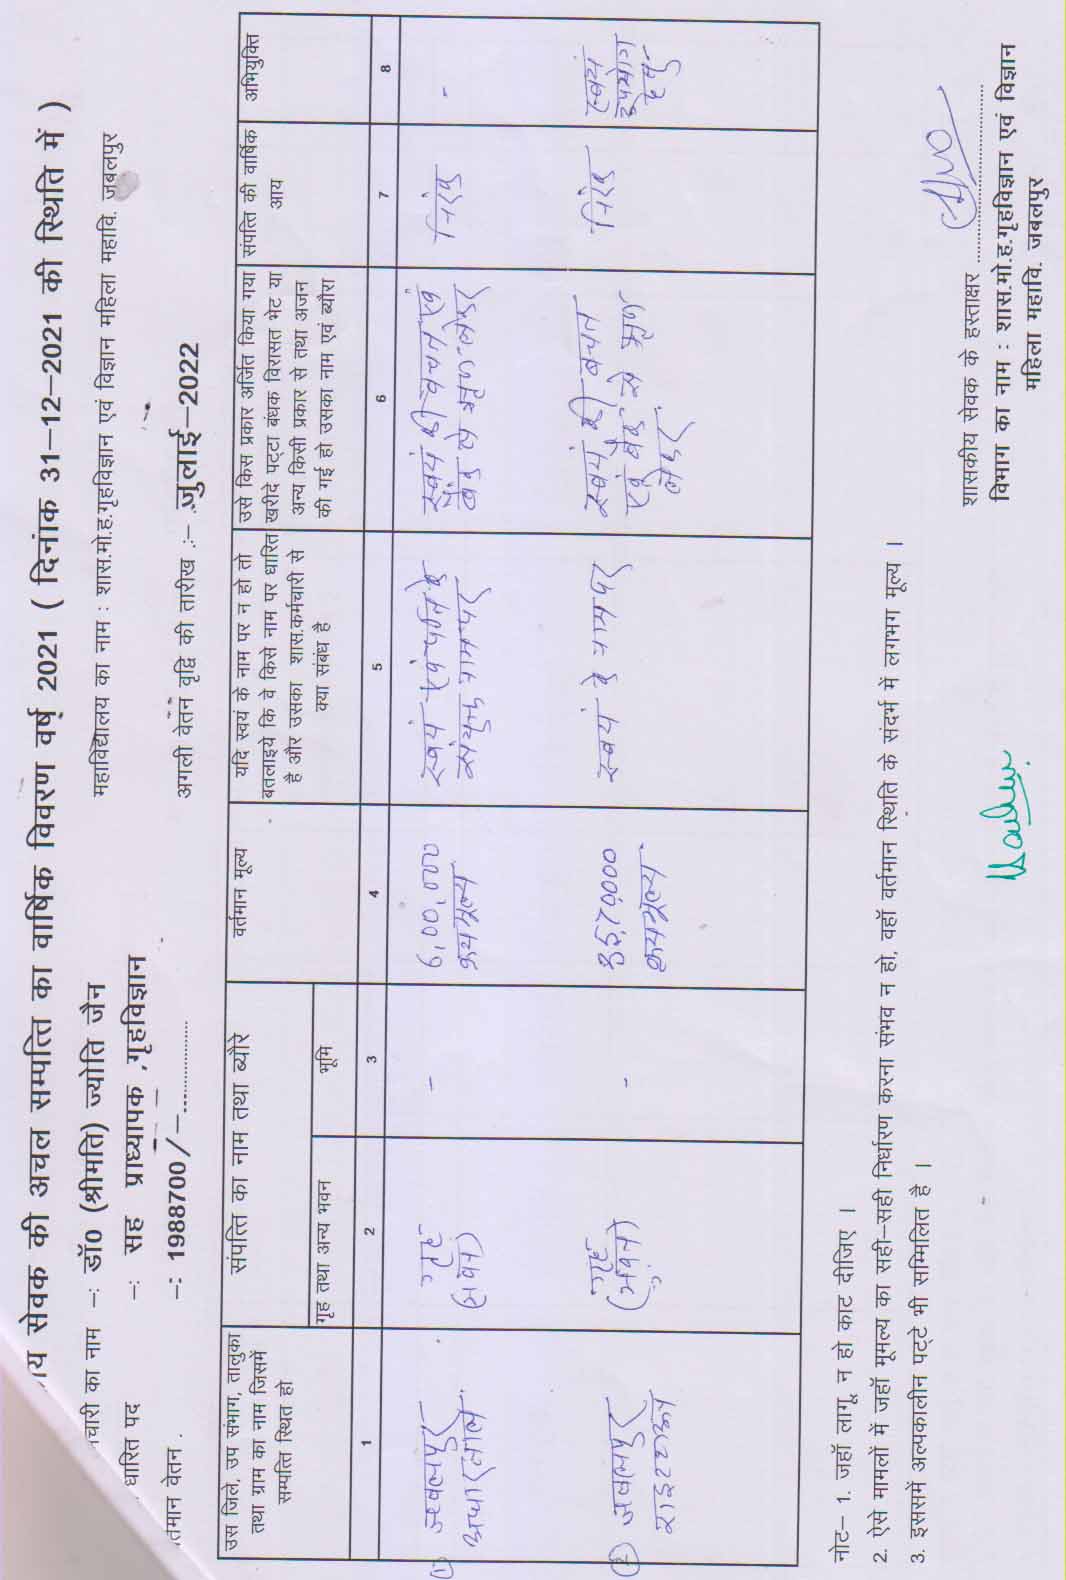 य सेवक की अचल सम्पत्ति का वार्षिक विवरण वर्ष 2021 ( दिनांक 31–12–2021 की स्थिति में )
चारी का नाम –: डॉ0 (श्रीमति) ज्योति जैन
महाविद्यालय का नाम : शास.मो.ह.गृहविज्ञान एवं विज्ञान महिला महावि. जबलपुर
धारित पद –: सह प्राध्यापक ,गृहविज्ञान
तमान वेतन . –: 1988700/–
अगली वेतन वृद्वि की तारीख :– जुलाई–2022
उस जिले, उप संभाग, तालुका
तथा ग्राम का नाम जिसमें
सम्पत्ति स्थित हो
संपत्ति का नाम तथा ब्यौरे
गृह तथा अन्य भवन
भूमि
वर्तमान मूल्य
यदि स्वयं के नाम पर न हो तो
बतलाइये कि वे किसे नाम पर धारित
है और उसका शास.कर्मचारी से
क्या संबंध है
उसे किस प्रकार अर्जित किया गया
खरीदे पट्टा बंधक विरासत भेट या
अन्य किसी प्रकार से तथा अजन
की गई हो उसका नाम एवं ब्यौरा
संपत्ति की वार्षिक
आय
अभियुक्ति
1 2 3 4 5 6 7 8
① जबलपुर
गृह
(भवन)
–
6,00,000
क्रयमूल्य
स्वयं एवं पति के
संयुक्त नाम पर
स्वयं की बचत एवं
बैंक से ऋण लेकर
निरंक
-
② जबलपुर
राइट टाउन
गृह
(भवन)
–
क्रयमूल्य.
स्वयं के नाम पर
स्वयं की बचत
एवं बैंक से ऋण
लेकर
निरंक
स्वयं
उपयोग
हेतु
नोट– 1. जहॉ लागू न हो काट दीजिए ।
2. ऐसे मामलों में जहॉ मूमल्य का सही–सही निर्धारण करना संभव न हो, वहॉ वर्तमान स्थिति के संदर्भ में लगभग मूल्य ।
3. इससमें अल्पकालीन पट्टे भी सम्मिलित है ।
शासकीय सेवक के हस्ताक्षर
विभाग का नाम : शास.मो.ह.गृहविज्ञान एवं विज्ञान
महिला महावि. जबलपुर